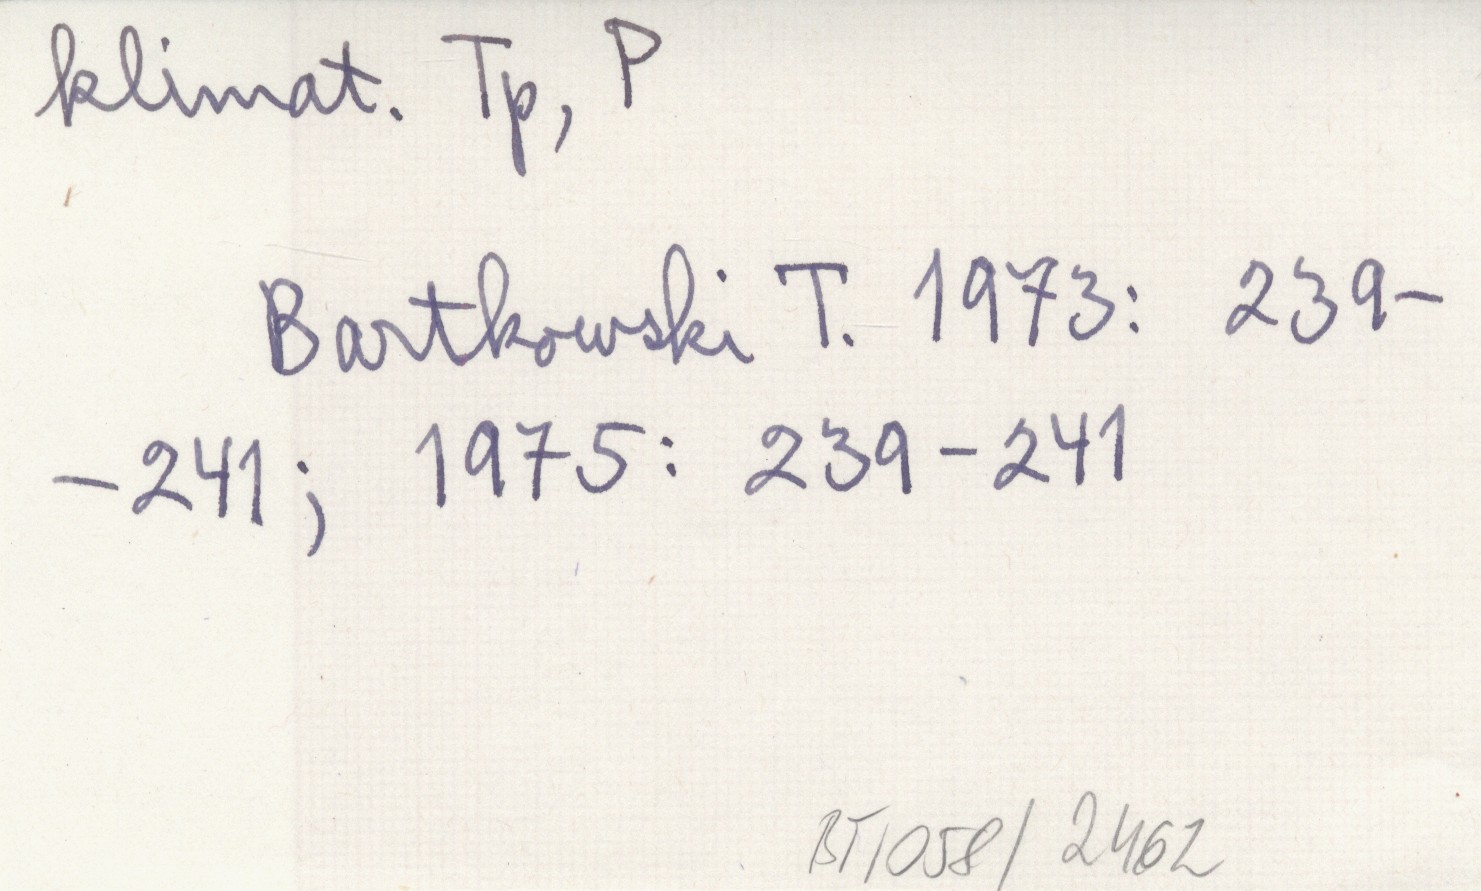 klimat. Tp, P
Bartkowski T. 1973: 239-
-241; 1975: 239-241
BT/058/2462